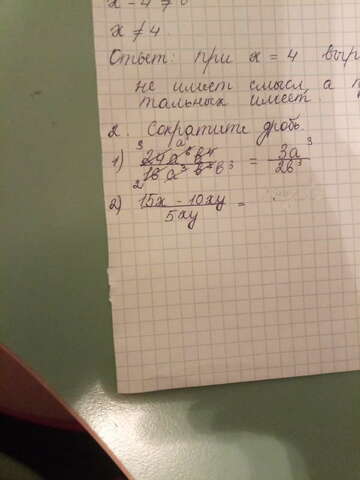 x - 4 ≠ 0
x ≠ 4.
Ответ: при x = 4 выр
не имеет смысл, а
тальных имеет.
2. Сократите дробь.
1) 24a⁶b⁴ / 16a³b⁷ = 3a³ / 2b³
2) 15x - 10xy / 5xy =